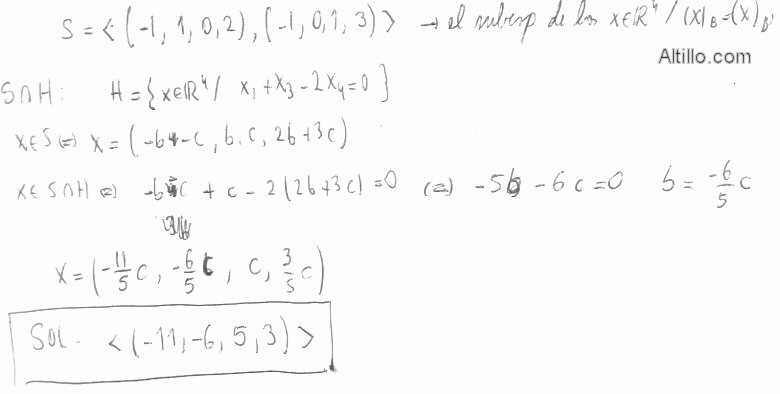 S = < (-1, 1, 0, 2), (-1, 0, 1, 3) > → el subesp de los x∈ℝ⁴ / (x)_B = (x)_B'
Altillo.com
S∩H: H = { x∈ℝ⁴ / x₁ + x₃ - 2x₄ = 0 }
x∈S ⇔ x = (-b - c, b, c, 2b + 3c)
x∈S∩H ⇔ -b - c + c - 2(2b + 3c) = 0 ⇔ -5b - 6c = 0 b = -6/5 c
x = (-11/5 c, -6/5 c, c, 3/5 c)
Sol. < (-11, -6, 5, 3) >